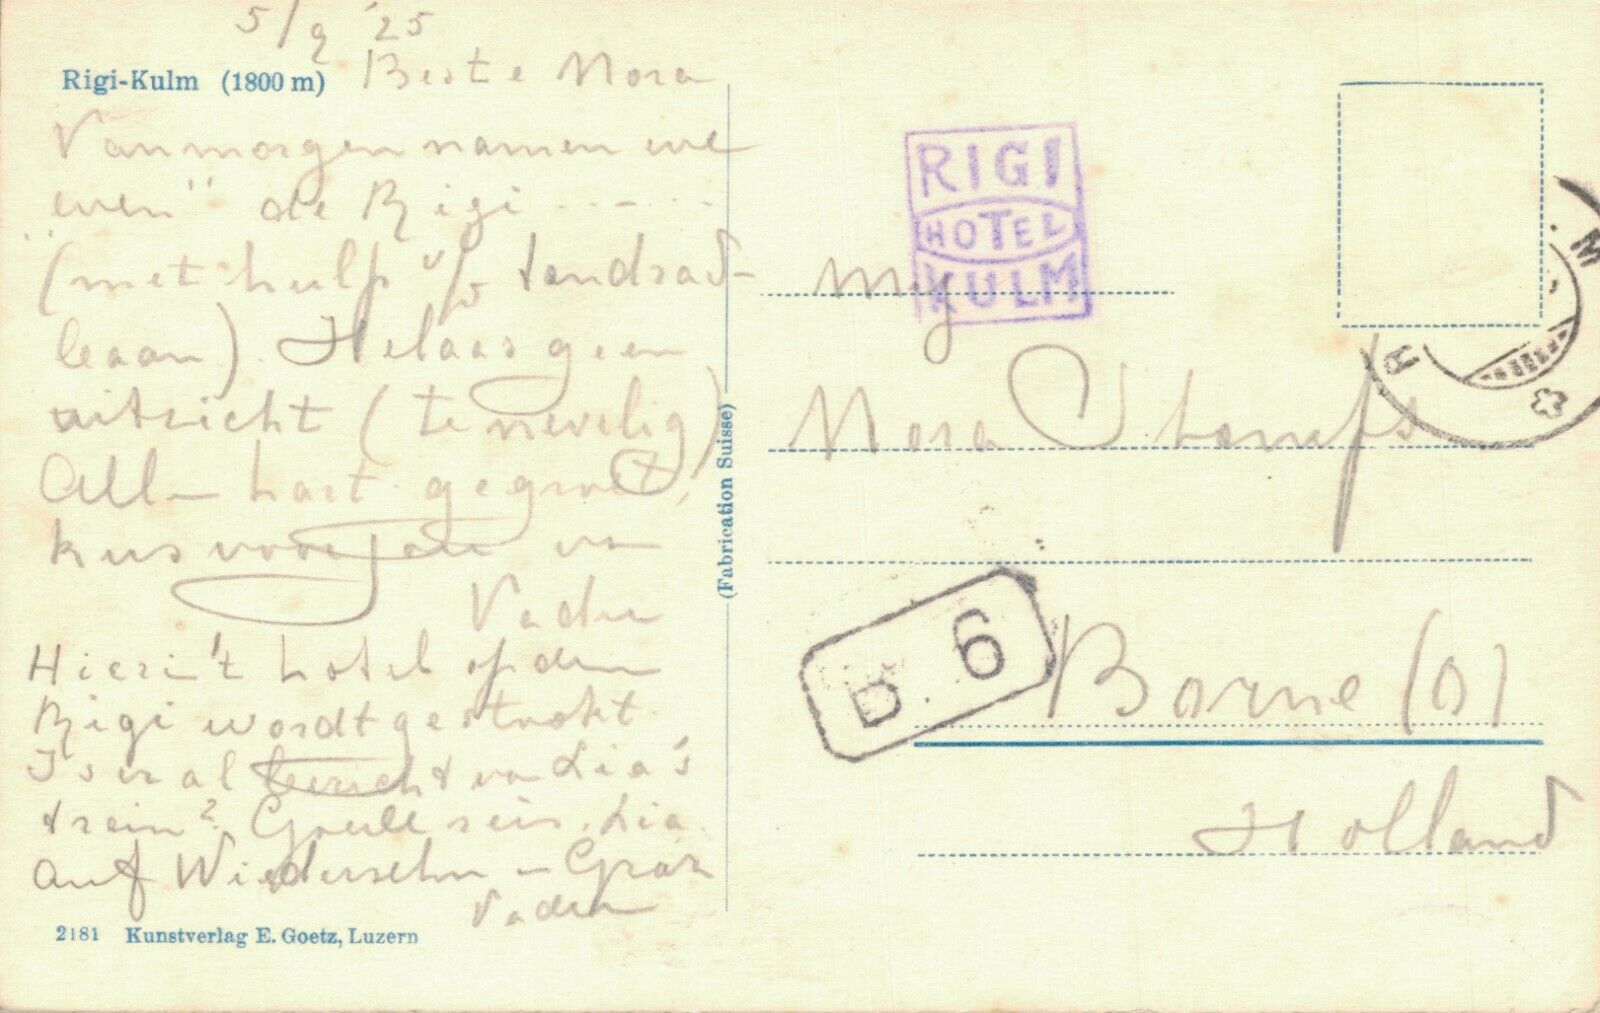 5/9 '25
Rigi-Kulm (1800 m)
Beste Nora
Vanmorgen namen we
"even" de Rigi ......
(met hulp v/d tandrad-
baan). Helaas geen
uitzicht (te nevelig)
All- hart. gegroet,
kus voor jou van
Vader
Hier in 't hotel op den
Rigi wordt gestookt.
Is er al bericht van Lia's
trein? Goede reis, Lia.
Auf Wiedersehn
Vader
2181 Kunstverlag E. Goetz, Luzern
(Fabrication Suisse)
RIGI
HOTEL
KULM
Mej
Nora
D. 6
Borne (O)
Holland